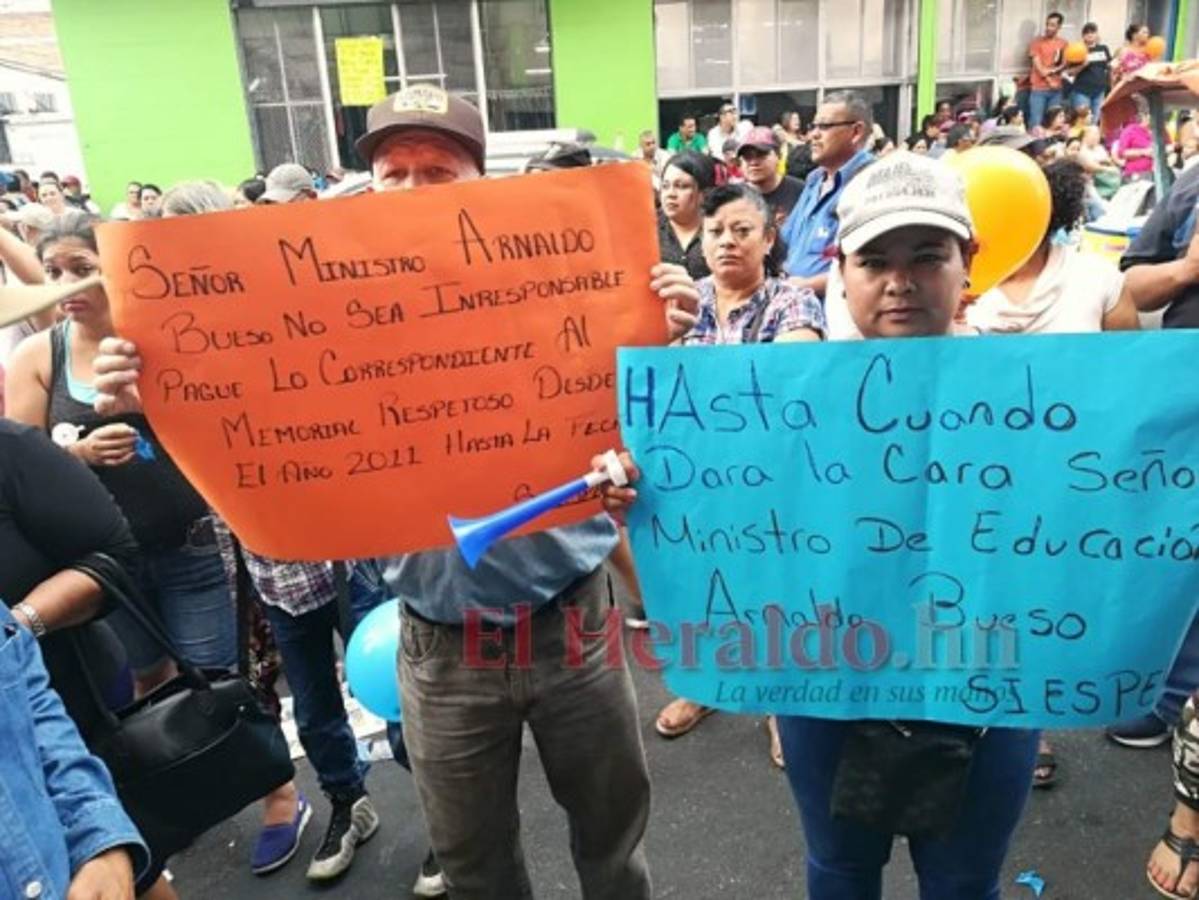 Señor Ministro Arnaldo
Bueso No Sea Inresponsable
Pague Lo Correspondiente Al
Memorial Respetoso Desde
El Año 2011 Hasta La Fecha
HAsta Cuando
Dara la Cara Señor
Ministro De Educación
Arnaldo Bueso
SIESPE
El Heraldo.hn
La verdad en sus manos